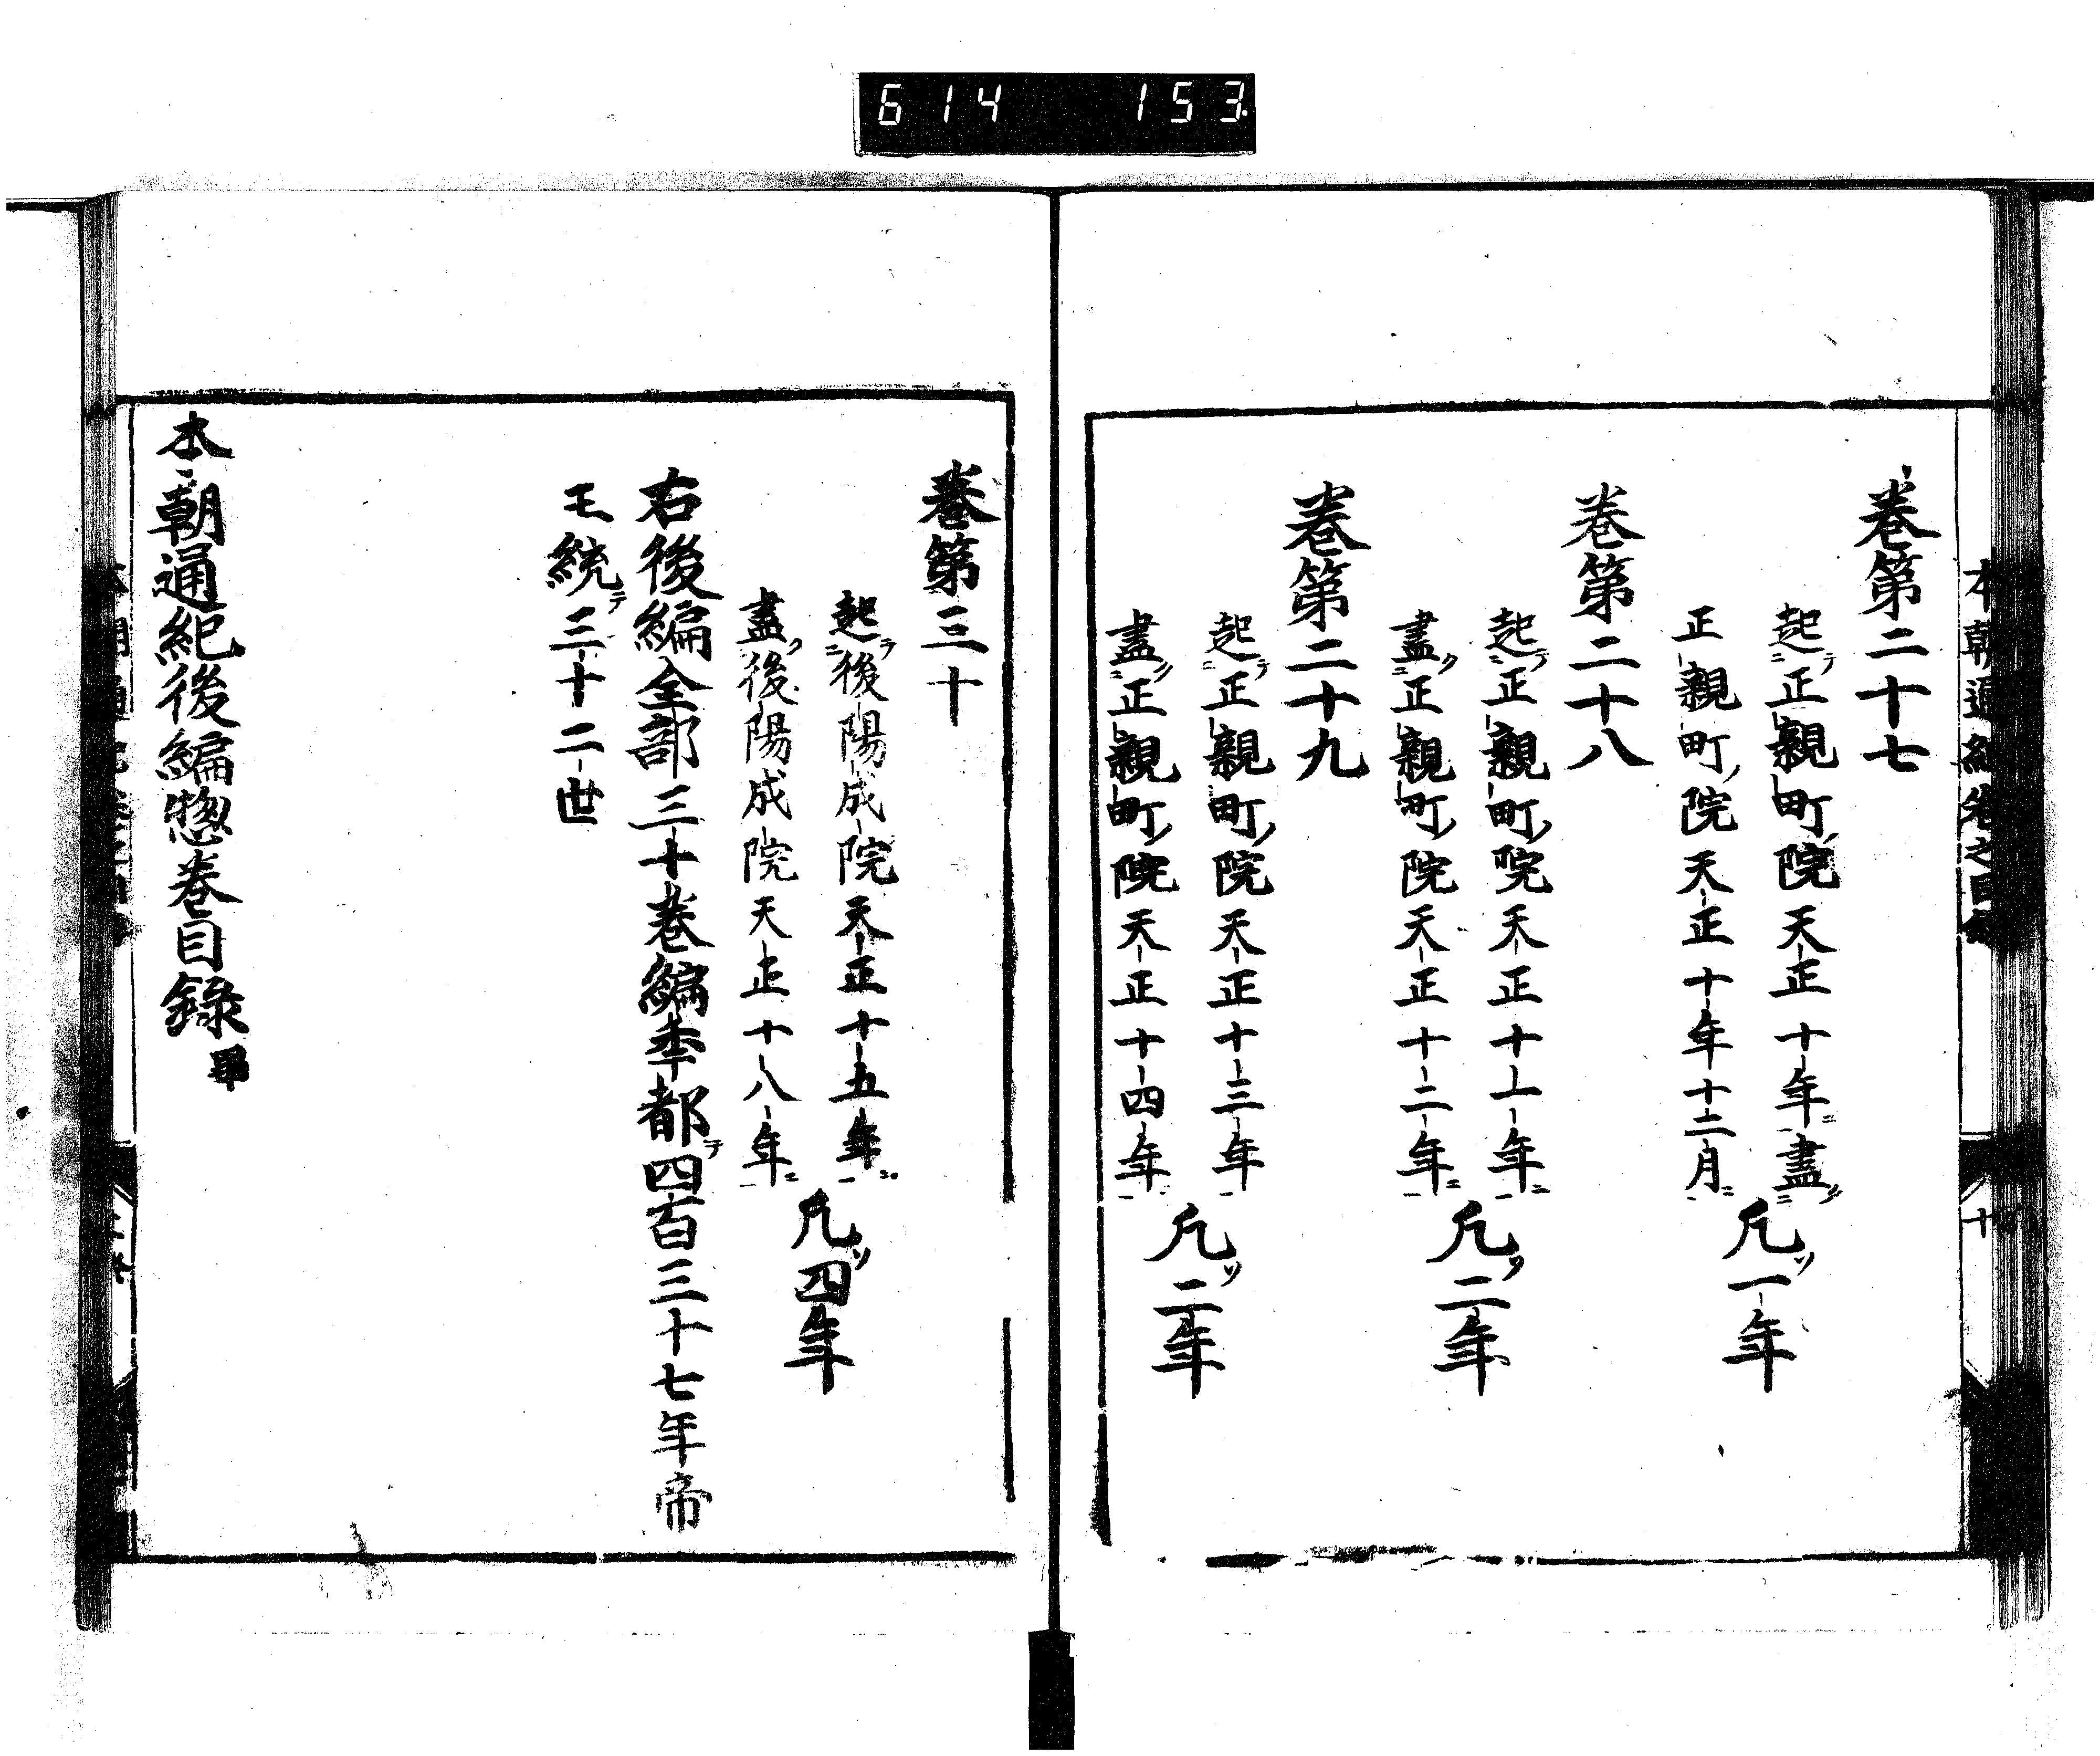 614 153
卷第二十七
起正親町院天正十年盡
正親町院天正十年十二月
凡一年
卷第二十八
起正親町院天正十一年
盡正親町院天正十二年
凡二年
卷第二十九
起正親町院天正十三年
盡正親町院天正十四年
凡二年
卷第三十
起後陽成院天正十五年
盡後陽成院天正十八年
凡四年
右後編全部三十卷編季都四百三十七年帝
王統三十二世
本朝通紀後編惣卷目錄畢